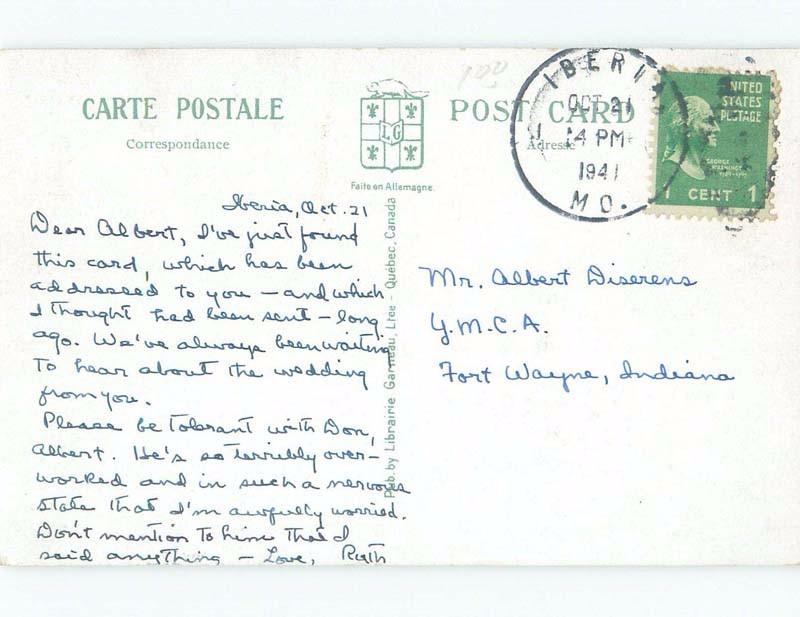 100
CARTE POSTALE
Correspondance
LG
Faite en Allemagne.
POST CARD
Adresse
IBERIA
OCT 21
4 PM
1941
MO.
UNITED
STATES
POSTAGE
GEORGE
WASHINGTON
CENT 1
Iberia, Oct. 21
Dear Albert, I've just found
this card, which has been
addressed to you – and which
I thought had been sent – long
ago. We've always been waiting
to hear about the wedding
from you.
Please be tolerant with Don,
Albert. He's so terribly over-
worked and in such a nervous
state that I'm awfully worried.
Don't mention to him that I
said anything – Love, Ruth
Pub. by Librairie Garneau, Ltee - Québec, Canada
Mr. Albert Diserens
Y.M.C.A.
Fort Wayne, Indiana